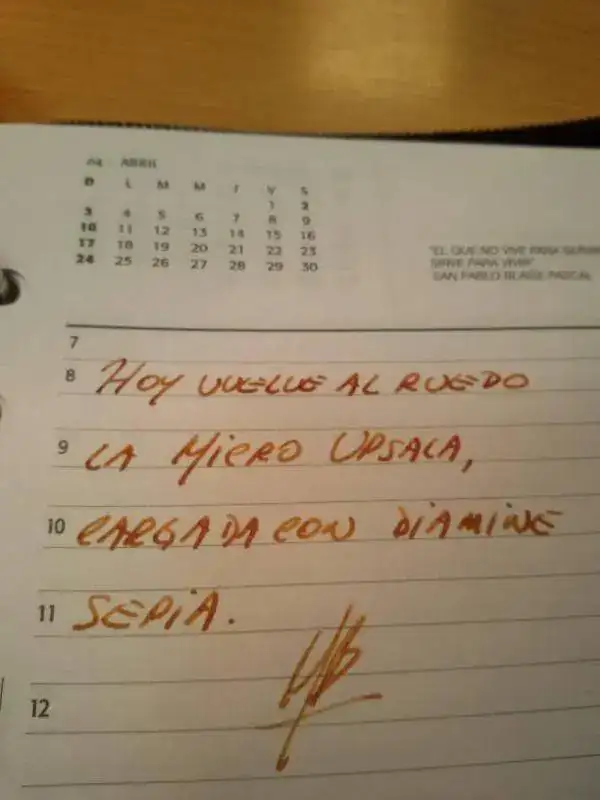 04 ABRIL
D L M M J V S
1 2
3 4 5 6 7 8 9
10 11 12 13 14 15 16
17 18 19 20 21 22 23
24 25 26 27 28 29 30
"EL QUE NO VIVE PARA SERVIR
SIRVE PARA VIVIR"
SAN PABLO BLAISE PASCAL
7
8 HOY VUELVE AL RUEDO
9 LA MICRO UPSALA,
10 CARGADA CON DIAMINE
11 SEPIA.
12